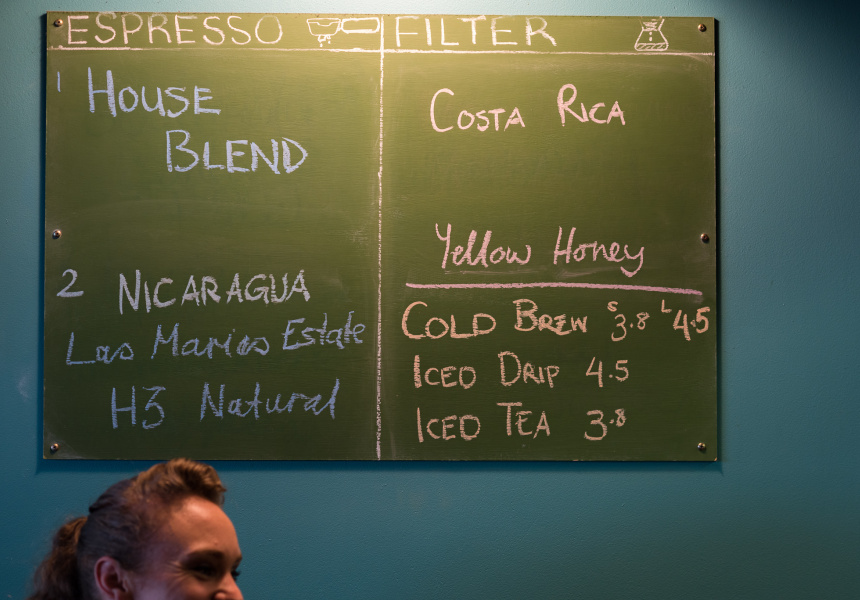 ESPRESSO
1 HOUSE
BLEND
2 NICARAGUA
Las Marias Estate
H3 Natural
FILTER
COSTA RICA
Yellow Honey
COLD BREW S3.8 L4.5
ICED DRIP 4.5
ICED TEA 3.8